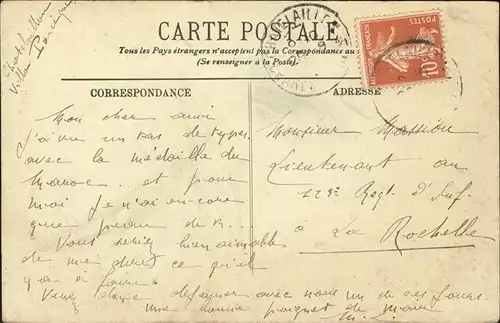 Chatelaillon
Villa
CARTE POSTALE
Tous les Pays étrangers n'acceptent pas la Correspondance au
(Se renseigner à la Poste.)
CHATELAILLON
POSTES
10c
CORRESPONDANCE
ADRESSE
Mon cher ami
J'ai vu un tas de types
avec la médaille du
Maroc... et pour
moi je n'ai encore
que peau de B...
Vous seriez bien aimable
de me dire ce qu'il
y a à faire
Venez donc déjeuner avec nous un de ces jours.
une bonne poignée de main
Monsieur Massiou
Lieutenant au
123e Regt d'Inf.
à La Rochelle